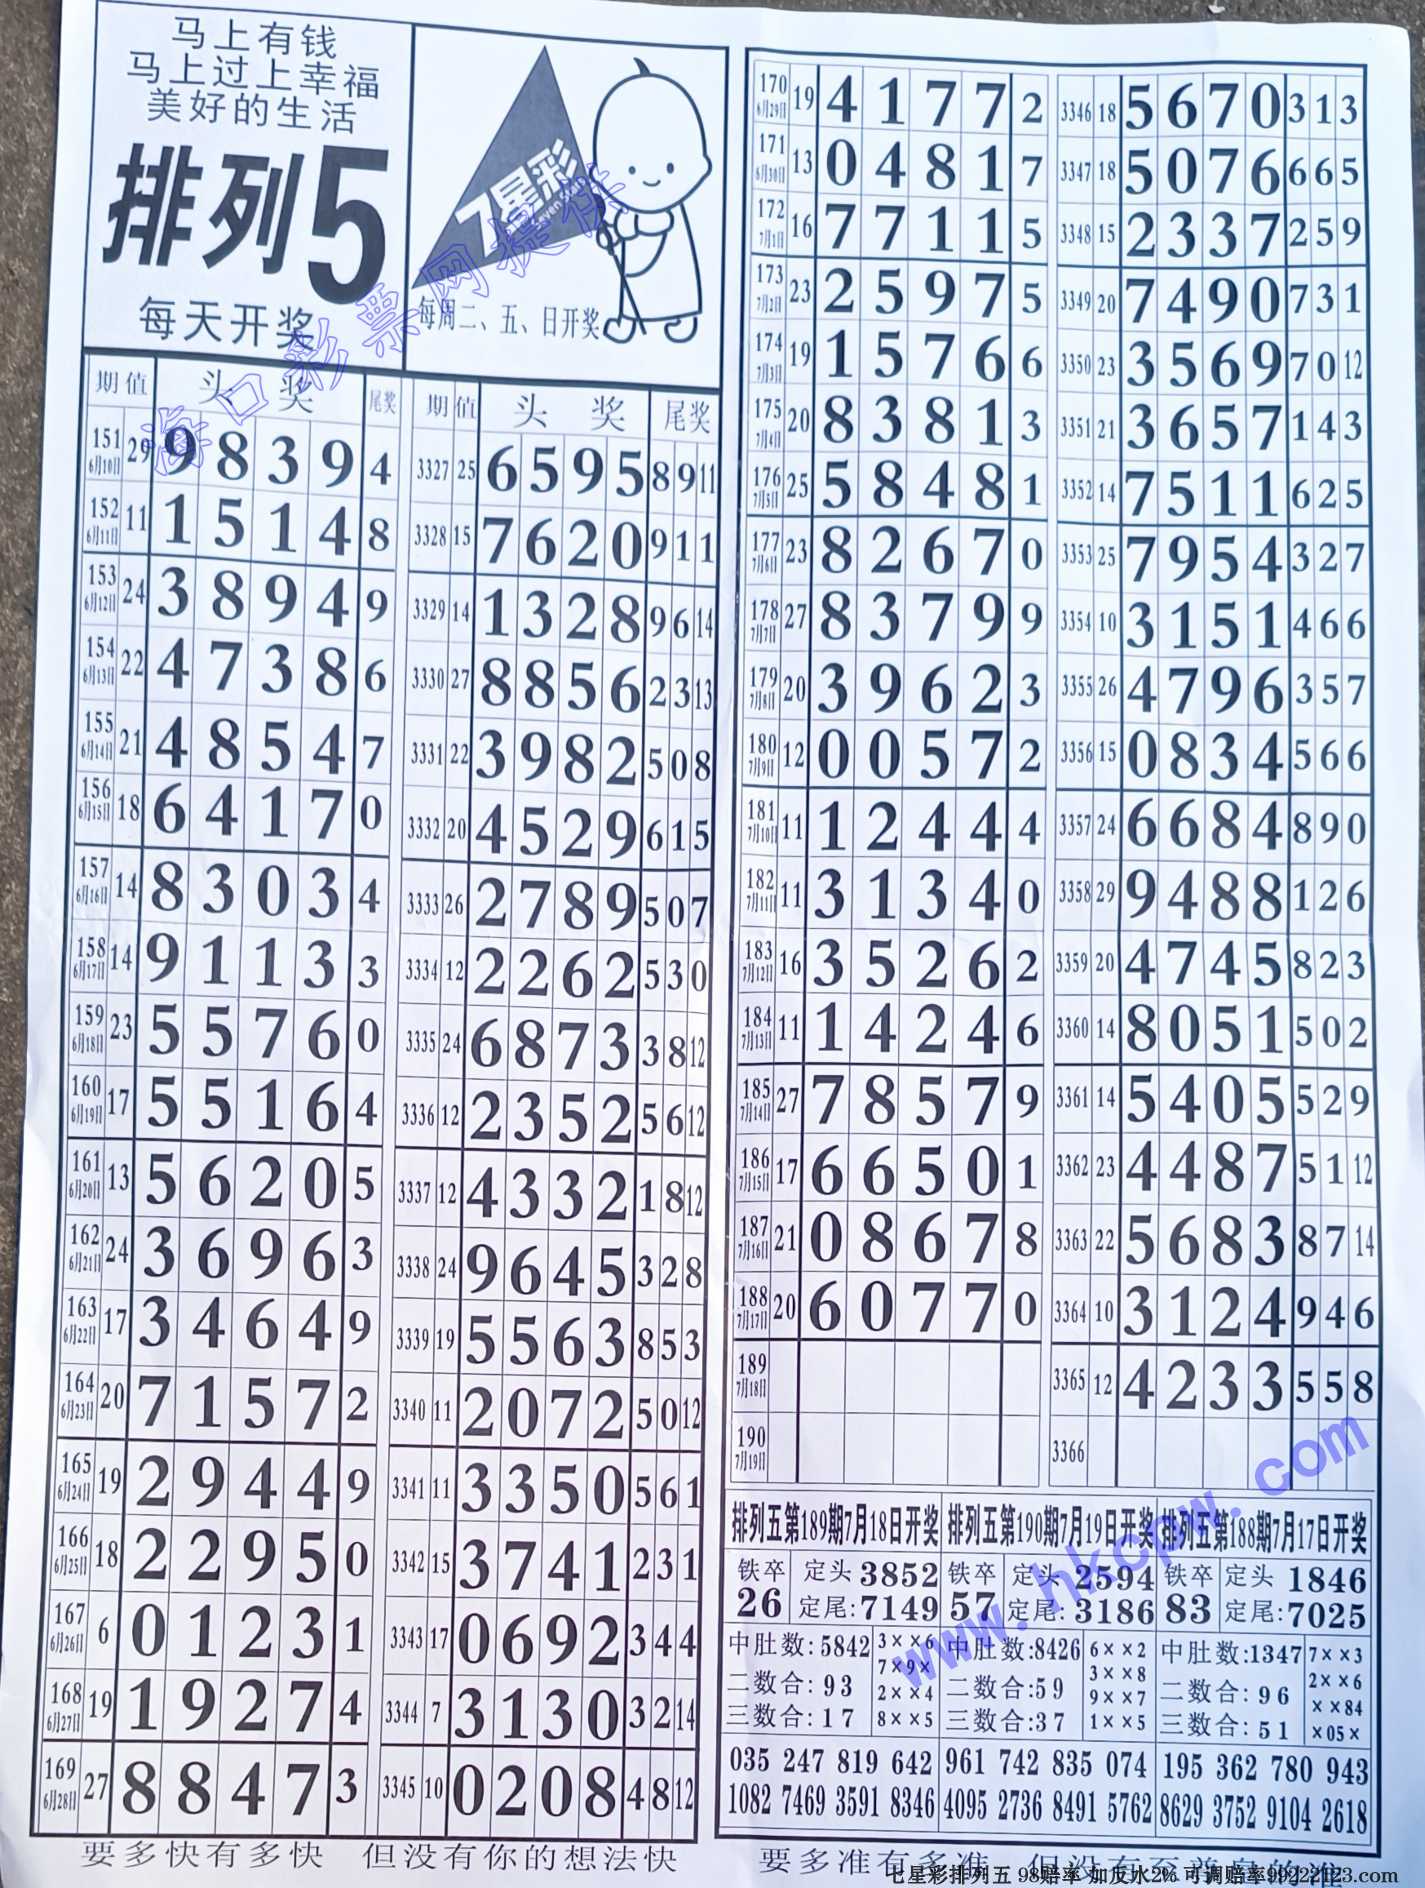 马上有钱
马上过上幸福
美好的生活
排列5
每天开奖
7星彩
每周二、五、日开奖
海口彩票网提供
期 值 头 奖 尾奖 期 值 头 奖 尾奖
151 6月10日 29 9 8 3 9 4 3327 25 6 5 9 5 8 9 11
152 6月11日 11 1 5 1 4 8 3328 15 7 6 2 0 9 1 1
153 6月12日 24 3 8 9 4 9 3329 14 1 3 2 8 9 6 14
154 6月13日 22 4 7 3 8 6 3330 27 8 8 5 6 2 3 13
155 6月14日 21 4 8 5 4 7 3331 22 3 9 8 2 5 0 8
156 6月15日 18 6 4 1 7 0 3332 20 4 5 2 9 6 1 5
157 6月16日 14 8 3 0 3 4 3333 26 2 7 8 9 5 0 7
158 6月17日 14 9 1 1 3 3 3334 12 2 2 6 2 5 3 0
159 6月18日 23 5 5 7 6 0 3335 24 6 8 7 3 3 8 12
160 6月19日 17 5 5 1 6 4 3336 12 2 3 5 2 5 6 12
161 6月20日 13 5 6 2 0 5 3337 12 4 3 3 2 1 8 12
162 6月21日 24 3 6 9 6 3 3338 24 9 6 4 5 3 2 8
163 6月22日 17 3 4 6 4 9 3339 19 5 5 6 3 8 5 3
164 6月23日 20 7 1 5 7 2 3340 11 2 0 7 2 5 0 12
165 6月24日 19 2 9 4 4 9 3341 11 3 3 5 0 5 6 1
166 6月25日 18 2 2 9 5 0 3342 15 3 7 4 1 2 3 1
167 6月26日 6 0 1 2 3 1 3343 17 0 6 9 2 3 4 4
168 6月27日 19 1 9 2 7 4 3344 7 3 1 3 0 3 2 14
169 6月28日 27 8 8 4 7 3 3345 10 0 2 0 8 4 8 12
要多快有多快 但没有你的想法快
170 6月29日 19 4 1 7 7 2 3346 18 5 6 7 0 3 1 3
171 6月30日 13 0 4 8 1 7 3347 18 5 0 7 6 6 6 5
172 7月1日 16 7 7 1 1 5 3348 15 2 3 3 7 2 5 9
173 7月2日 23 2 5 9 7 5 3349 20 7 4 9 0 7 3 1
174 7月3日 19 1 5 7 6 6 3350 23 3 5 6 9 7 0 12
175 7月4日 20 8 3 8 1 3 3351 21 3 6 5 7 1 4 3
176 7月5日 25 5 8 4 8 1 3352 14 7 5 1 1 6 2 5
177 7月6日 23 8 2 6 7 0 3353 25 7 9 5 4 3 2 7
178 7月7日 27 8 3 7 9 9 3354 10 3 1 5 1 4 6 6
179 7月8日 20 3 9 6 2 3 3355 26 4 7 9 6 3 5 7
180 7月9日 12 0 0 5 7 2 3356 15 0 8 3 4 5 6 6
181 7月10日 11 1 2 4 4 4 3357 24 6 6 8 4 8 9 0
182 7月11日 11 3 1 3 4 0 3358 29 9 4 8 8 1 2 6
183 7月12日 16 3 5 2 6 2 3359 20 4 7 4 5 8 2 3
184 7月13日 11 1 4 2 4 6 3360 14 8 0 5 1 5 0 2
185 7月14日 27 7 8 5 7 9 3361 14 5 4 0 5 5 2 9
186 7月15日 17 6 6 5 0 1 3362 23 4 4 8 7 5 1 12
187 7月16日 21 0 8 6 7 8 3363 22 5 6 8 3 8 7 14
188 7月17日 20 6 0 7 7 0 3364 10 3 1 2 4 9 4 6
189 7月18日 3365 12 4 2 3 3 5 5 8
190 7月19日 3366
排列五第189期7月18日开奖
铁卒 26 定头 3852
定尾:7149
中肚数:5842
二数合: 93
三数合: 17
3××6
7×9×
2××4
8××5
035 247 819 642
1082 7469 3591 8346
排列五第190期7月19日开奖
铁卒 57 定头 2594
定尾: 3186
中肚数:8426
二数合:59
三数合:37
6××2
3××8
9××7
1××5
961 742 835 074
4095 2736 8491 5762
排列五第188期7月17日开奖
铁卒 83 定头 1846
定尾:7025
中肚数:1347
二数合: 96
三数合: 51
7××3
2××6
××84
×05×
195 362 780 943
8629 3752 9104 2618
www.hkcpw.com
要多准有多准 但没有至尊的准
七星彩排列五 98赔率 如反水2% 可调赔率99222123.com